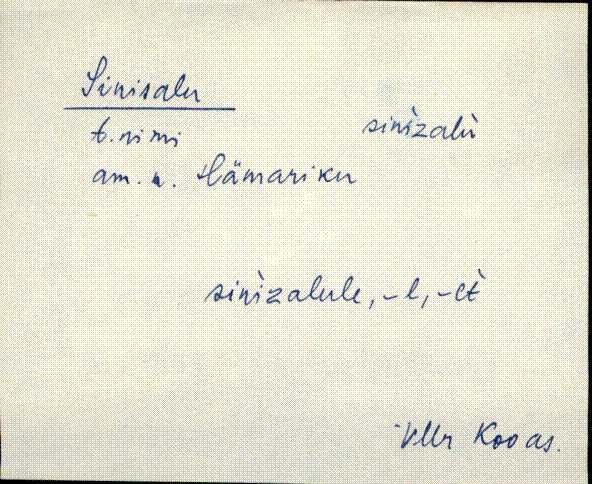 Sinisalu
t. nimi sinìzalù
am. n. Hämariku
sinìzalule, -l, -lt
Vllr Koo as.